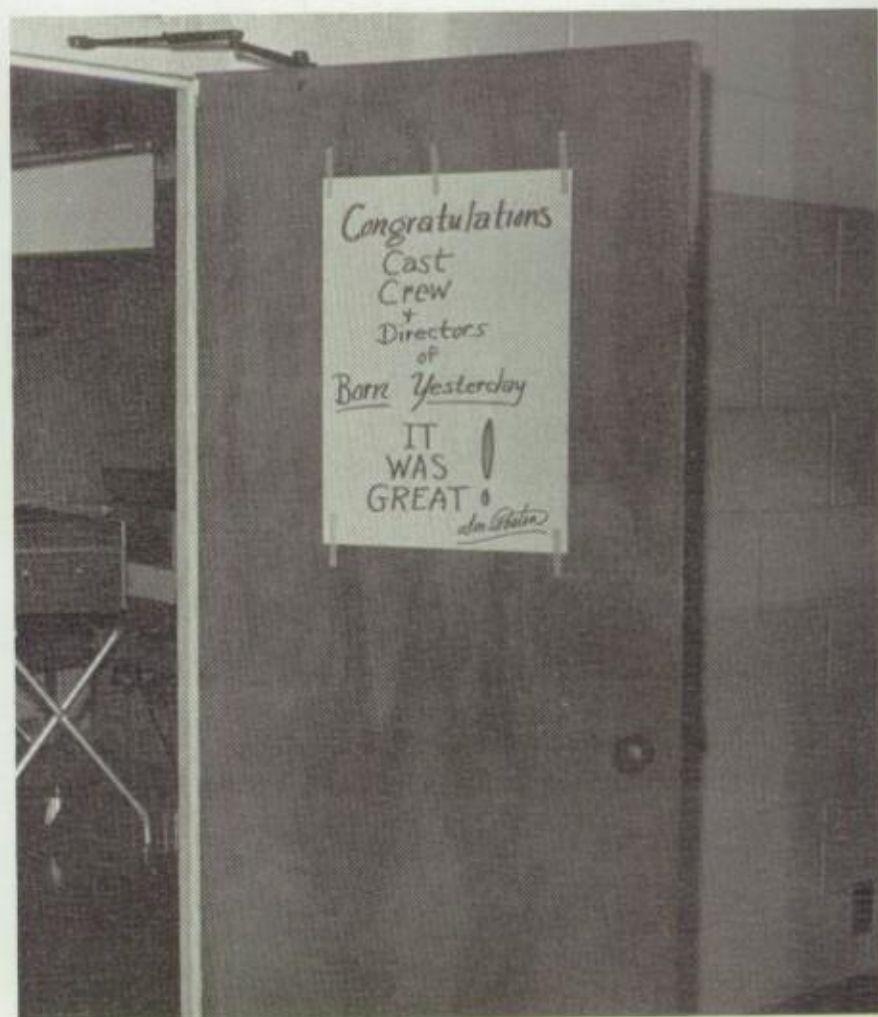 Congratulations
Cast
Crew
+
Directors
of
Born Yesterday
IT
WAS
GREAT!